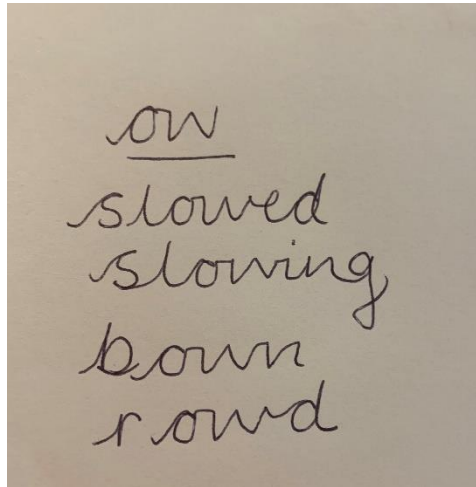 ow
slowed
slowing
bown
rowd